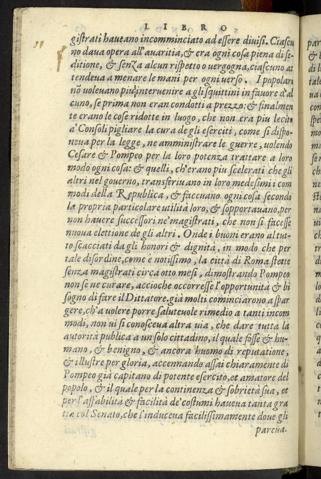 LIBRO
gistrati haueano incomminciato ad essere diuisi. Ciascu
no daua opera all'auaritia, & era ogni cosa piena di se-
ditione, & senza alcun rispetto o vergogna, ciascuno at
tendeua a menare le mani per ogni verso. I popolari
nō voleuano piu interuenire a gli squittini in fauore d'al
cuno, se prima non eran condotti a prezzo: & finalmen
te erano le cose ridotte in luogo, che non era piu lecito
a' Consoli pigliare la cura de gli eserciti, come si dispo-
neua per la legge, ne amministrare le guerre, uolendo
Cesare & Pompeo per la loro potenza trattare a loro
modo ogni cosa: & quelli, ch'erano piu scelerati che gli
altri nel gouerno, transferiuano in loro medesimi i com
modi della Republica, & faceuano ogni cosa secondo
la propria particolare utilità loro, & sopportauano, per
non hauere successori ne' magistrati, che non si facesse
nuoua elettione de gli altri. Onde i buoni erano al tut-
to scacciati da gli honori & dignità, in modo che per
tale disordine, come è notissimo, la città di Roma stette
senza magistrati circa otto mesi, dimostrando Pompeo
non se ne curare, accioche occorresse l'opportunità & bi
sogno di fare il Dittatore. già molti cominciarono a spar
gere, ch'a volere porre saluteuole rimedio a tanti incom
modi, non ui si conosceua altra uia, che dare tutta la
autorità publica a un solo cittadino, il quale fosse & hu-
mano, & benigno, & ancora huomo di reputatione,
& illustre per gloria, accennando assai chiaramente di
Pompeo già capitano di potente esercito, et amatore del
popolo, & il quale per la continenza & sobrietà sua, et
per l'affabilità & facilità de' costumi haueua tanta gra
tia col Senato, che l'induceua facilissimamente doue gli
parcua.